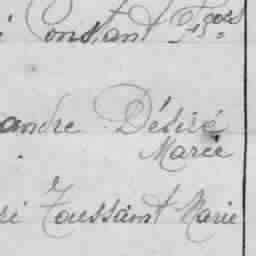 é Constant Fçois
andre Désiré
Marie
ré Toussaint Marie